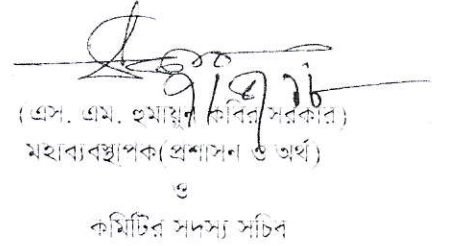 (এস. এম. হুমায়ুন কবির সরকার)
মহাব্যবস্থাপক(প্রশাসন ও অর্থ)
ও
কমিটির সদস্য সচিব